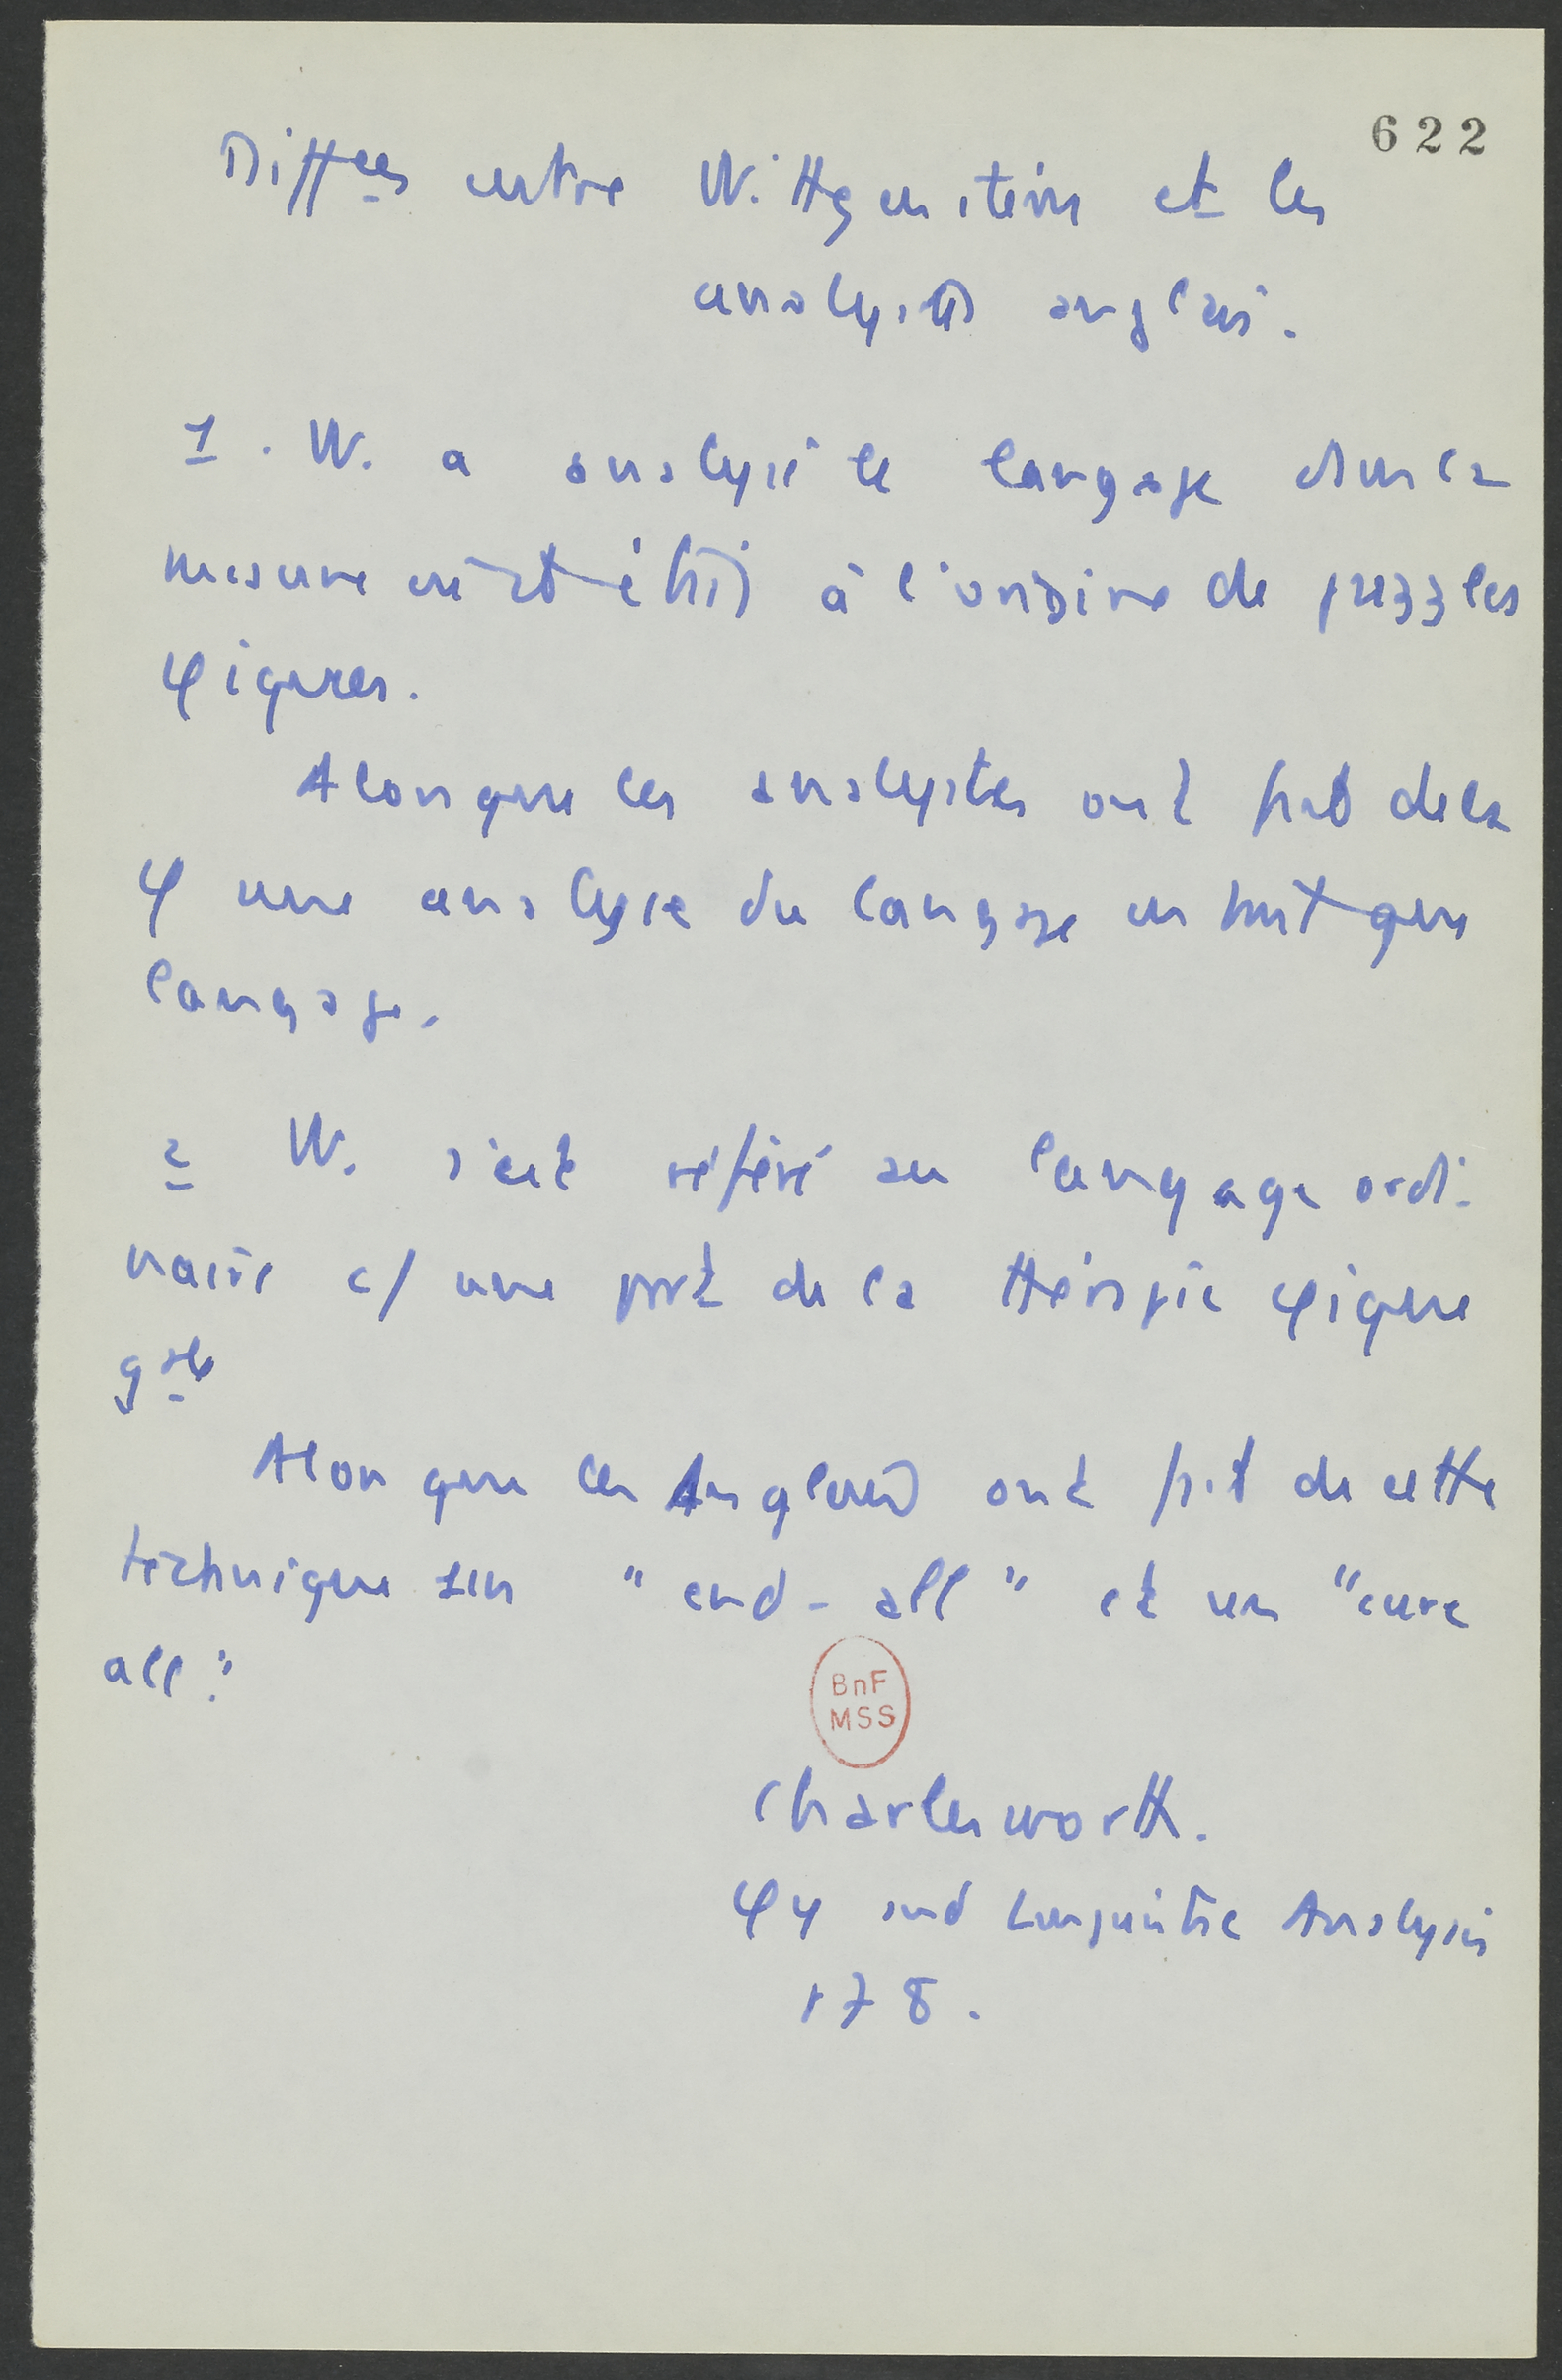 622
Diffces entre Wittgenstein et les
analystes anglais.
1. W. a analysé le langage dans la
mesure où il était à l'origine de puzzles
φiques.
Alors que les analystes ont fait de la
φ une analyse du langage en tant que
langage.
2 W. s'est référé au langage ordi-
naire c/ une part de la thérapie φique
gale
Alors que les Anglais ont fait de cette
technique un "end-all" et un "cure
all".
BnF
MSS
Charlesworth.
φy and Linguistic Analysis
178.